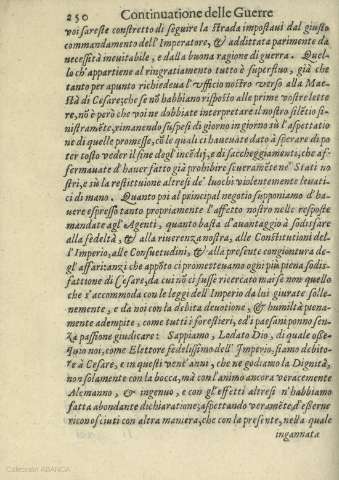 250 Continuatione delle Guerre
voi sareste constretto di seguire la strada impostaui dal giusto
commandamento dell'Imperatore, & addittata parimente da
necessità ineuitabile, e dalla buona ragione di guerra. Quel-
lo ch'appartiene al ringratiamento tutto è superfluo, già che
tanto per apunto richiedeua l'vfficio nostro verso alla Mae-
stà di Cesare; che se nõ habbiamo risposto alle prime vostre lette
re, nõ è però che voi ne dobbiate interpretare il nostro silẽtio si-
nistramẽte, rimanendo suspesi di giorno in giorno sù l'aspettatio
ne di quelle promesse, cõ le quali ci haueuate dato à sperare di po
ter tosto veder il fine degl'incẽdij, e di saccheggiamenti, che af-
fermauate d'hauer fatto già prohibire seueramẽte ne' Stati no
stri, e sù la restituione altresì de' luochi violentemente leuati-
ci di mano. Quanto poi al principal negotio supponiamo d'ha-
uere espresso tanto propriamente l'affetto nostro nelle risposte
mandate agl'Agenti, quanto basta d'auantaggio à sodisfare
alla fedeltà, & alla riuerenza nostra, alle Constitutioni del-
l'Imperio, alle Consuetudini, & alla presente congiontura de-
gl'affari tanzi che appũto ci prometteuamo ogni più piena sodis-
fattione di Cesare, da cui nõ ci fusse ricercato mai se non quello
che s'accommoda con le leggi dell'Imperio da lui giurate solle-
nemente, e da noi con la debita deuotione, & humiltà piena-
mente adempite, come tutti i forestieri, ed i paesani ponno sen-
za passione giudicare: Sappiamo, Lodato Dio, di quale osse-
quio noi, come Elettore fedelissimo dell'Imperio, siamo debito-
re à Cesare, e in questi vent'anni, che ne godiamo la Dignità,
non solamente con la bocca, mà con l'animo ancora veracemente
Alemanno, & ingenuo, e con gl'effetti altresi n'habbiamo
fatta abondante dichiaratione; aspettando veramẽte d'esserne
riconosciuti con altra maniera, che con la presente, nella quale
ingannata
Colección ABANCA